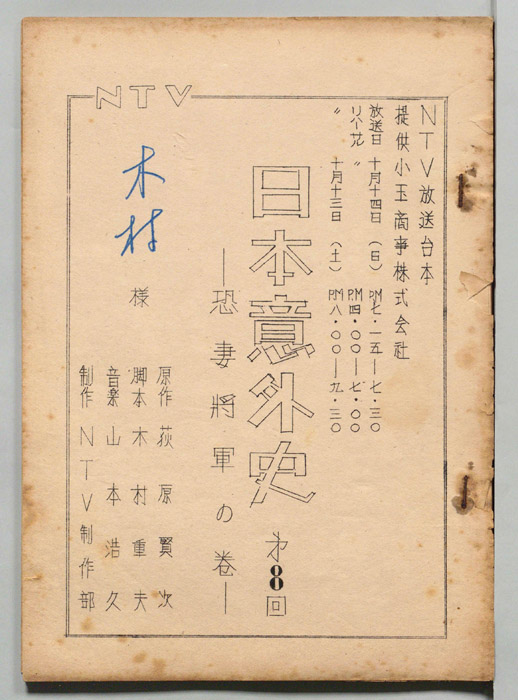 NTV
NTV放送台本
提供小玉商事株式会社
放送日 十月十四日 (日) PM七・一五—七・三〇
リハーサル 〃 PM四・〇〇—七・〇〇
〃 十月十三日 (土) PM八・〇〇—九・三〇
日本意外史 第8回
—恐妻將軍の巻—
原作 荻原賢次
脚本 木村重夫
音楽 山本浩久
制作 NTV制作部
木村様